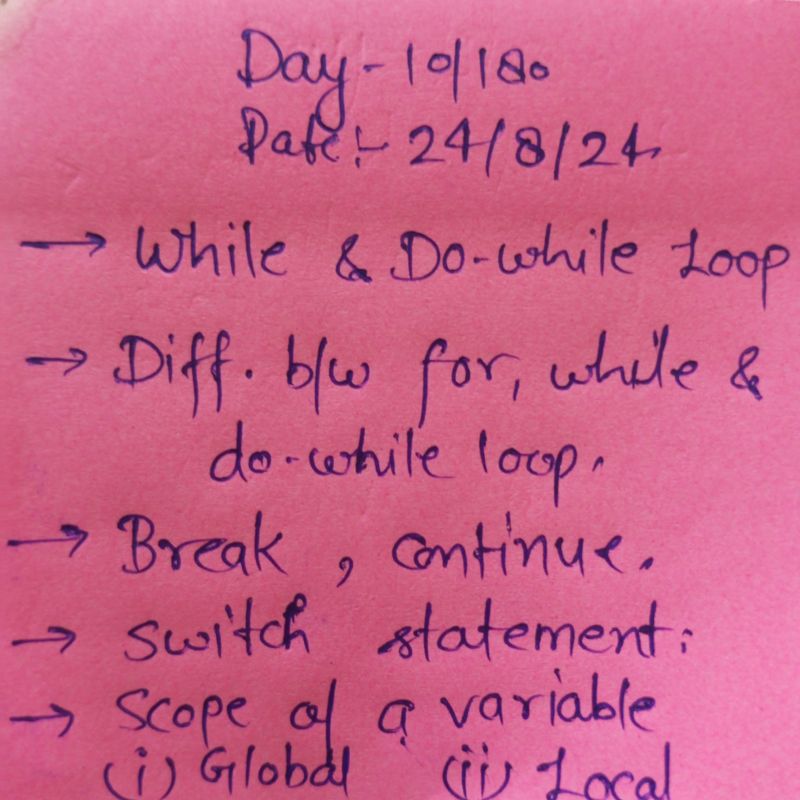 Day - 10/180
Date:- 24/8/24
→ While & Do-while Loop
→ Diff. b/w for, while &
do-while loop.
→ Break, continue.
→ Switch statement:
→ Scope of a variable
(i) Global (ii) Local